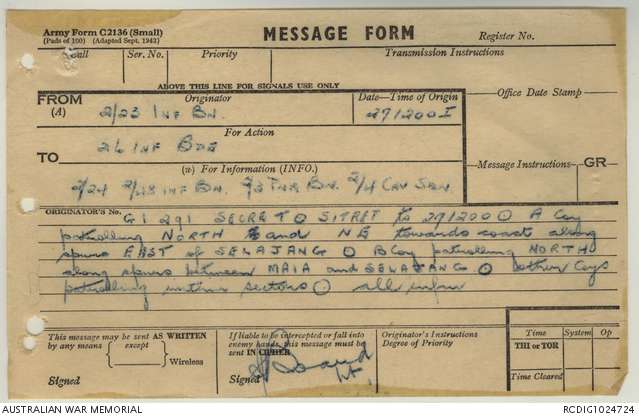 Army Form C2136 (Small)
(Pads of 100) (Adapted Sept. 1942)
MESSAGE FORM
Register No.
Call
Ser. No.
Priority
Transmission Instructions
ABOVE THIS LINE FOR SIGNALS USE ONLY
FROM
(A)
Originator
2/23 INF BN.
Date—Time of Origin
271200 I
Office Date Stamp
For Action
TO
26 INF BDE
(w) For Information (INFO.)
Message Instructions
GR
2/24 2/48 INF BN. 2/4 CAV SQN
ORIGINATOR'S No.
G1 291 SECRET ⊙ SITREP to 271200 ⊙ A Coy
patrolling NORTH and NE towards coast along
spurs EAST of SELAJANG ⊙ B Coy patrolling NORTH
along spurs between MAIA and SELAJANG ⊙ other Coys
patrolling within sectors ⊙ all infm
This message may be sent AS WRITTEN
by any means
except
Wireless
Signed
If liable to be intercepted or fall into
enemy hands, this message must be
sent IN CIPHER
Signed
Lt.
Originator's Instructions
Degree of Priority
Time
System
Op
THI or TOR
Time Cleared
AUSTRALIAN WAR MEMORIAL
RCDIG1024724